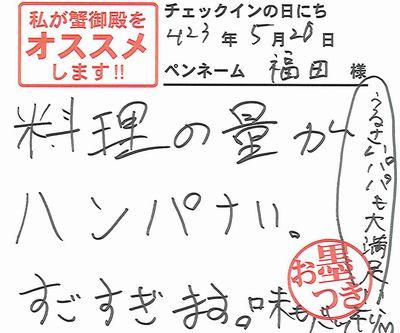 私が蟹御殿を
オススメ
します!!
チェックインの日にち
H23年5月28日
ペンネーム 福田 様
料理の量が
ハンパナい。
すごすぎます。味も
うるさいパパも大満足
お墨つき